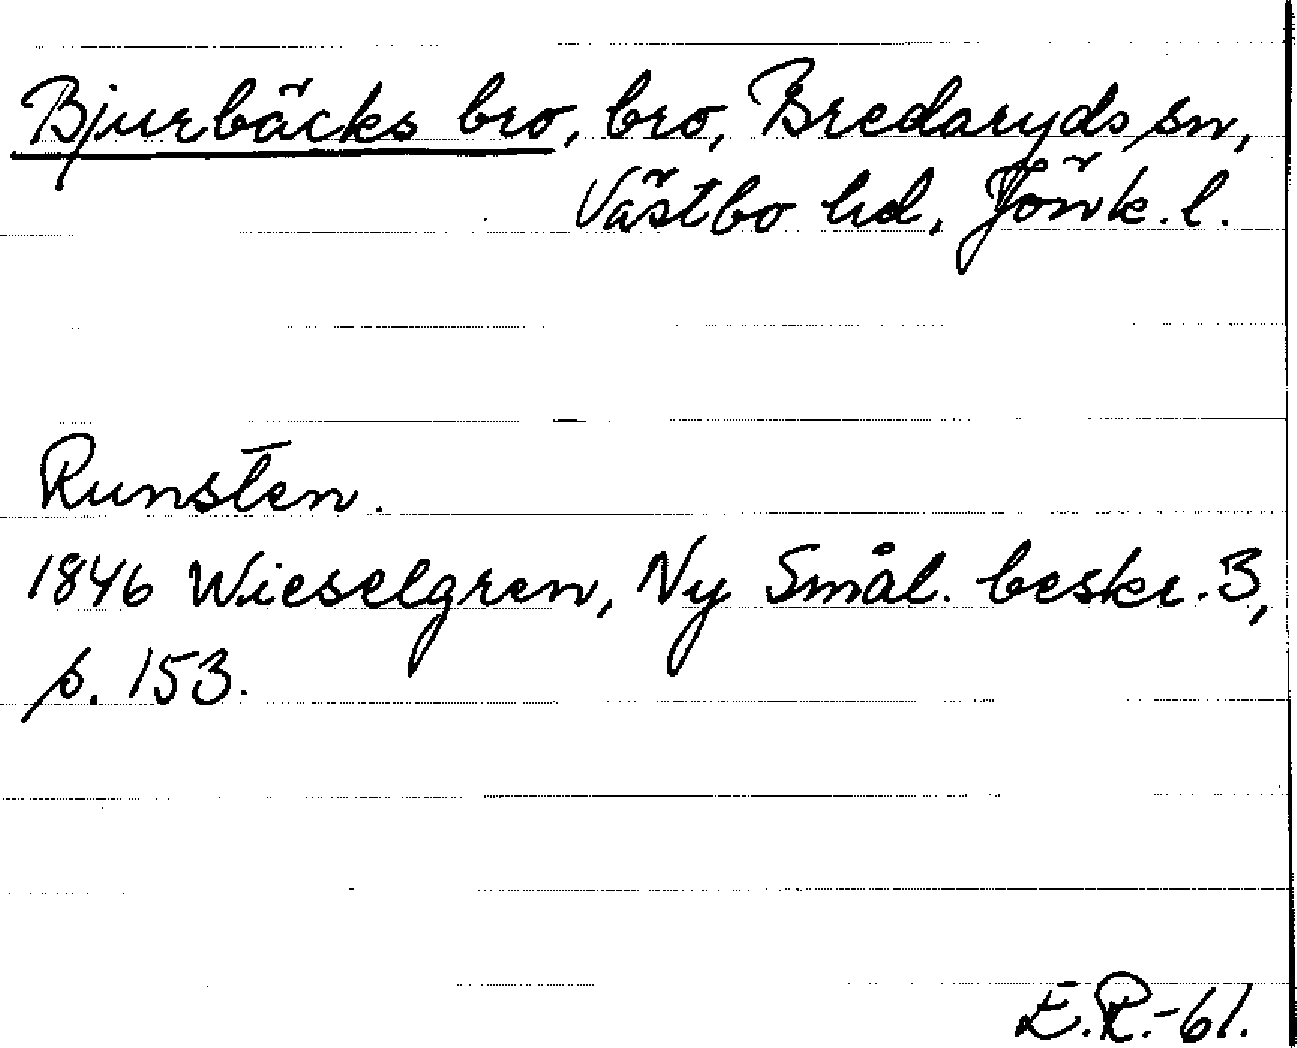 Bjurbäcks bro, bro, Bredaryds sn,
Västbo hd, Jönk. l.
Runsten.
1846 Wieselgren, Ny Smål. beskr. 3,
s. 153.
E.R.-61.